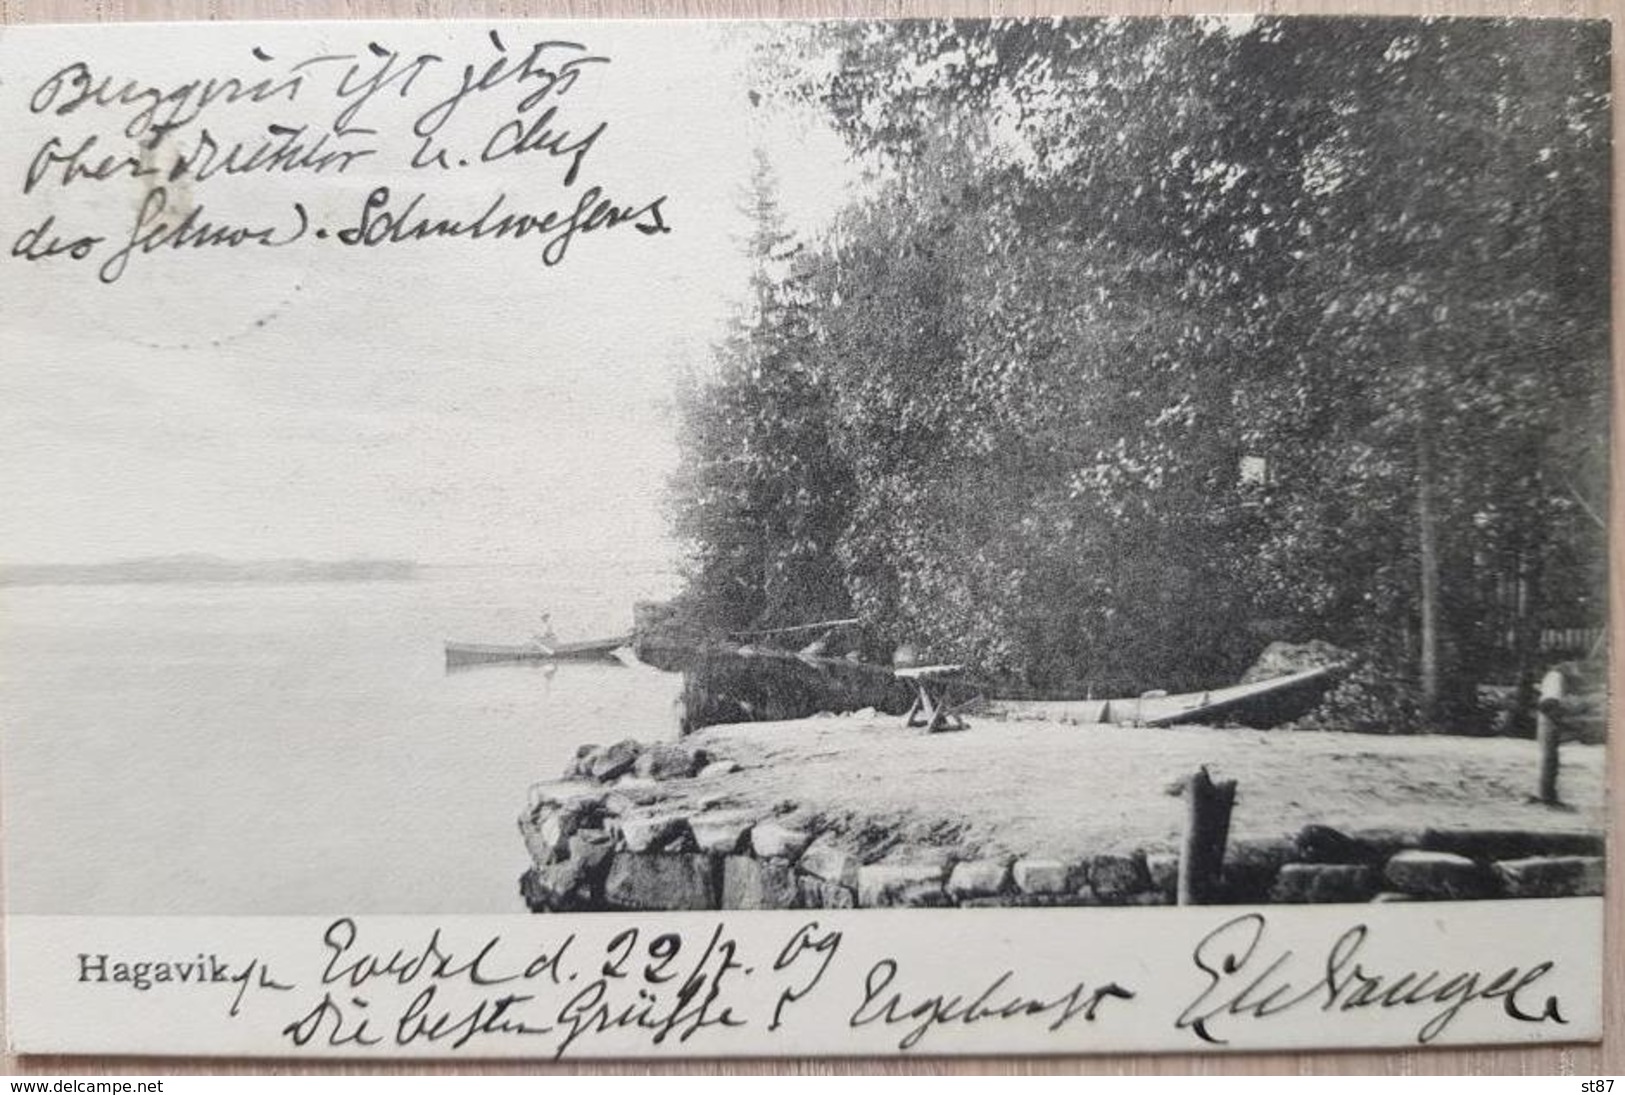 ist jetzt
Ober direktor u. Chef
des Schulwesens
Hagavik
d. 22/7. 09
Die besten Grüsse
Ergebenst
www.delcampe.net
st87